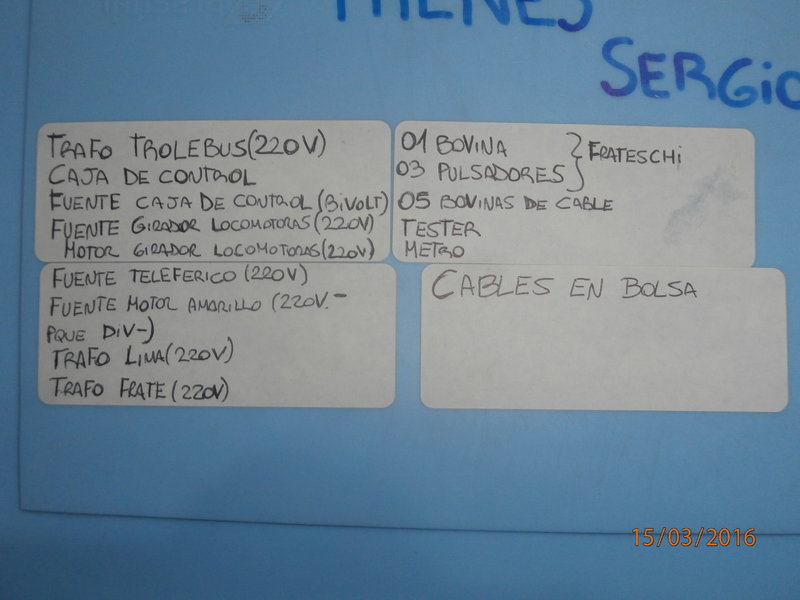 TRENES
SERGIO
TRAFO TROLEBUS (220V)
CAJA DE CONTROL
FUENTE CAJA DE CONTROL (BiVOLT)
FUENTE GIRADOR LOCOMOTORAS (220V)
MOTOR GIRADOR LOCOMOTORAS (220V)
FUENTE TELEFERICO (220V)
FUENTE MOTOR AMARILLO (220V.-
PQUE DIV-)
TRAFO LIMA (220V)
TRAFO FRATE (220V)
01 BOVINA
03 PULSADORES } FRATESCHi
05 BOVINAS DE CABLE
TESTER
METRO
CABLES EN BOLSA
15/03/2016